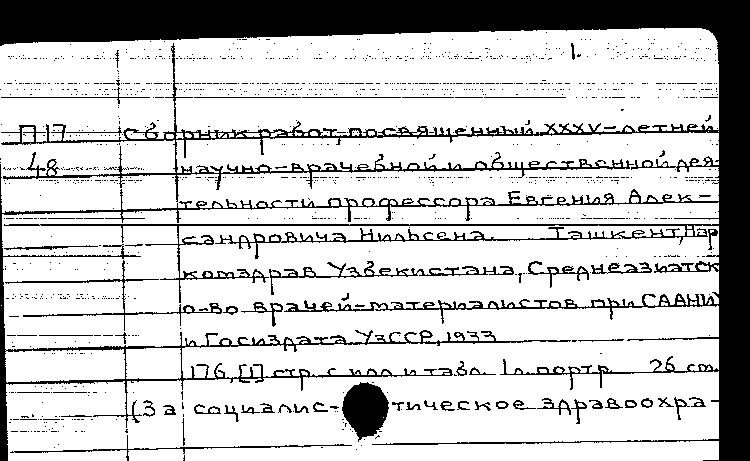 1.
П.17 Сборник работ, посвященный XXXV-летней
48 научно-врачебной и общественной дея-
тельности профессора Евгения Алек-
сандровича Нильсена. Ташкент, Нар
комздрав Узбекистана, Среднеазиатск
о-во врачей-материалистов при СААНИ
и Госиздата УзССР, 1933
176, [1] стр. с илл. и табл. 1 л. портр. 26 cm.
(За социалистическое здравоохра-